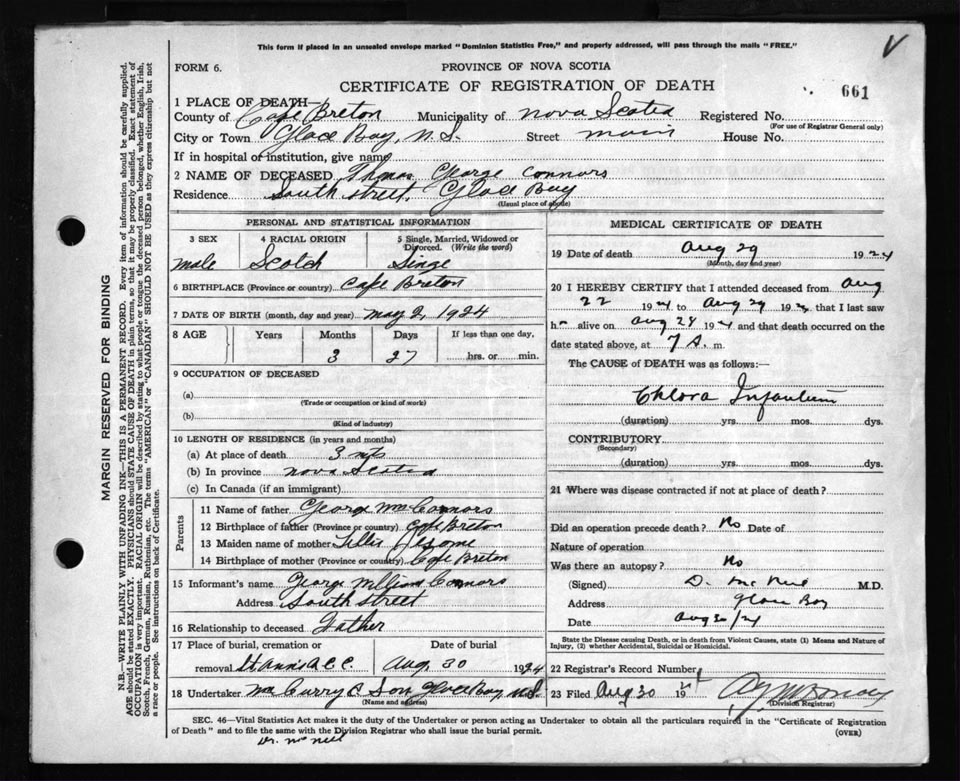 This form if placed in an unsealed envelope marked "Dominion Statistics Free," and properly addressed, will pass through the mails "FREE."
V
FORM 6.
PROVINCE OF NOVA SCOTIA
CERTIFICATE OF REGISTRATION OF DEATH
661
1 PLACE OF DEATH—
County of Cape Breton Municipality of Nova Scotia Registered No.
(For use of Registrar General only)
City or Town Glace Bay, N.S. Street main House No.
If in hospital or institution, give name
2 NAME OF DECEASED Thomas George Connors
Residence South Street, Glace Bay
(Usual place of abode)
PERSONAL AND STATISTICAL INFORMATION
3 SEX 4 RACIAL ORIGIN 5 Single, Married, Widowed or Divorced. (Write the word)
male Scotch Singe
6 BIRTHPLACE (Province or country) Cape Breton
7 DATE OF BIRTH (month, day and year) may 2, 1924
8 AGE Years Months Days If less than one day,
3 27 hrs. or min.
9 OCCUPATION OF DECEASED
(a)
(Trade or occupation or kind of work)
(b)
(Kind of industry)
10 LENGTH OF RESIDENCE (in years and months)
(a) At place of death 3 mts
(b) In province nova Scotia
(c) In Canada (if an immigrant)
Parents
11 Name of father George Connors
12 Birthplace of father (Province or country) Cape Breton
13 Maiden name of mother
14 Birthplace of mother (Province or country) Cape Breton
15 Informant's name George William Connors
Address South street
16 Relationship to deceased Father
17 Place of burial, cremation or Date of burial
removal St Anns C.C. Aug. 30 1924
18 Undertaker Mc Curry & Son, Glace Bay, N.S.
(Name and address)
MEDICAL CERTIFICATE OF DEATH
19 Date of death Aug 29 1924
(Month, day and year)
20 I HEREBY CERTIFY that I attended deceased from Aug
22 1924 to Aug 29 1924, that I last saw
h alive on Aug 28 1924 and that death occurred on the
date stated above, at 7 A. m.
The CAUSE of DEATH was as follows:
Chlora Infantum
(duration) yrs. mos. dys.
CONTRIBUTORY
(Secondary)
(duration) yrs. mos. dys.
21 Where was disease contracted if not at place of death?
Did an operation precede death? No Date of
Nature of operation
Was there an autopsy? No
(Signed) D. Mc Neil M.D.
Address Glace Bay
Date Aug 30/24
State the Disease causing Death, or in death from Violent Causes, state (1) Means and Nature of
Injury, (2) whether Accidental, Suicidal or Homicidal.
22 Registrar's Record Number
23 Filed Aug 30 19
(Division Registrar)
SEC. 46—Vital Statistics Act makes it the duty of the Undertaker or person acting as Undertaker to obtain all the particulars required in the "Certificate of Registration
of Death" and to file the same with the Division Registrar who shall issue the burial permit.
(OVER)
Dr. McNeil
MARGIN RESERVED FOR BINDING
N.B.—WRITE PLAINLY WITH UNFADING INK—THIS IS A PERMANENT RECORD. Every item of information should be carefully supplied.
AGE should be stated EXACTLY. PHYSICIANS should STATE CAUSE OF DEATH in plain terms, so that it may be properly classified. Exact statement of
OCCUPATION is very important. RACIAL ORIGIN will be described by stating to what people or tongue the deceased person belonged, whether English, Irish,
Scotch, French, German, Russian, Ruthenian, etc. The terms "AMERICAN" or "CANADIAN" SHOULD NOT BE USED as they express citizenship but not
a race or people. See instructions on back of Certificate.